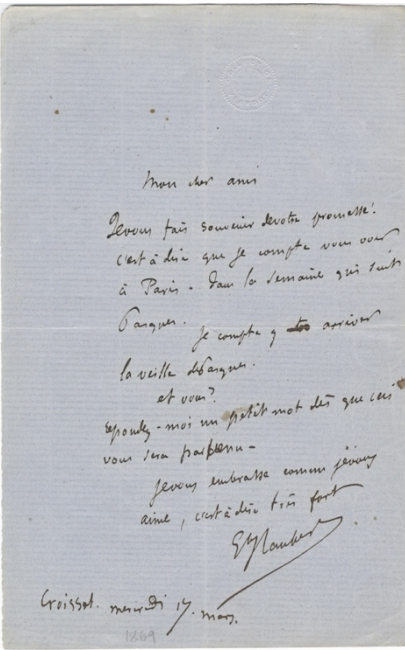 Mon cher ami
Je vous fais souvenir de votre promesse!
c'est à dire que je compte vous voir
à Paris - dans la semaine qui suit
Pasques. je compte y arriver
la veille de Pasques.
et vous?
Répondez-moi un petit mot dès que ceci
vous sera parvenu -
je vous embrasse comme je vous
aime, c'est à dire très fort
G Flaubert
Croisset. mercredi 17. mars.
1869